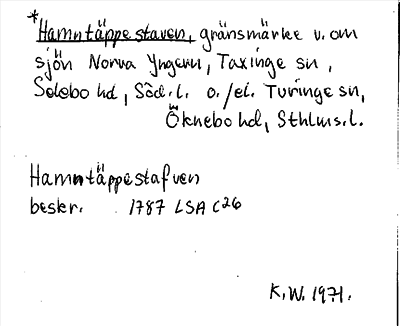 *Hamntäppestaven, gränsmärke v. om
sjön Norra Yngern, Taxinge sn,
Selebo hd, Söd.l. o./el. Turinge sn,
Öknebo hd, Sthlms.l.
Hamntäppestafven
beskr. 1787 LSA C26
K.W. 1971.